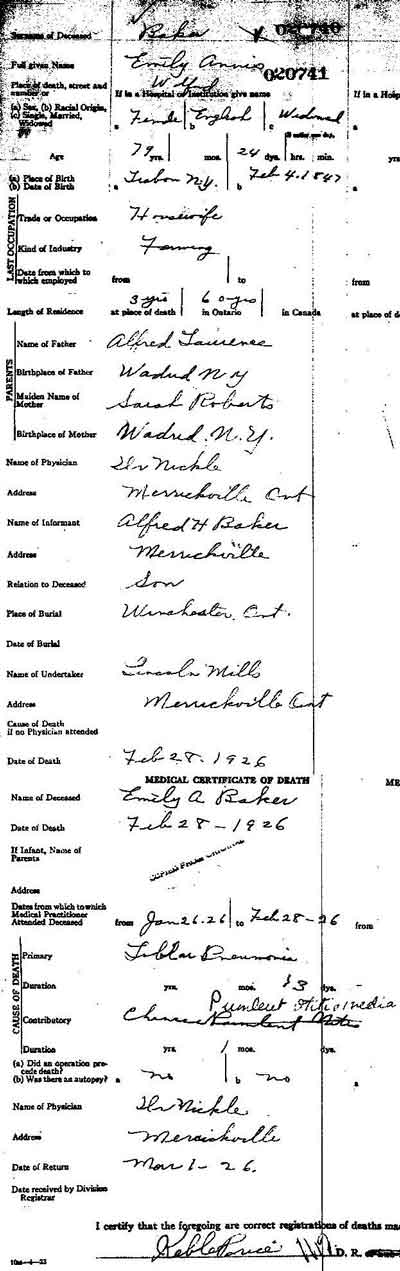 Surname of Deceased Baker
020740
Full given Name Emily Annis
020741
Place of death, street and number or
If in a Hospital or Institution give name
If in a Hosp
(a) Sex, (b) Racial Origin, (c) Single, Married, Widowed
a Female b English c Widowed a
Age 79 yrs. mos. 24 dys. hrs. min. yrs
(a) Place of Birth
(b) Date of Birth
a Lisbon N.Y. b Feb 4. 1847 a
LAST OCCUPATION
Trade or Occupation Housewife
Kind of Industry Farming
Date from which to which employed from to from
Length of Residence 3 yrs at place of death 60 yrs in Ontario in Canada at place of d
PARENTS
Name of Father Alfred Laurence
Birthplace of Father Wadrid N Y
Maiden Name of Mother Sarah Roberts
Birthplace of Mother Wadrid. N.Y.
Name of Physician Dr Nickle
Address Merrickville Ont
Name of Informant Alfred H Baker
Address Merrickville
Relation to Deceased Son
Place of Burial Winchester. Ont.
Date of Burial
Name of Undertaker Lincoln Mills
Address Merrickville Ont
Cause of Death if no Physician attended
Date of Death Feb 28. 1926
MEDICAL CERTIFICATE OF DEATH ME
Name of Deceased Emily A Baker
Date of Death Feb 28-1926
If Infant, Name of Parents
Address
Dates from which to which Medical Practitioner Attended Deceased from Jan 26.26 to Feb 28-26 from
CAUSE OF DEATH
Primary Lobar Pneumonia
Duration yrs. mos. 3 dys.
Purulent Otitis media
Contributory
Duration yrs. 1 mos. dys.
(a) Did an operation precede death?
(b) Was there an autopsy? a no b no a
Name of Physician Dr Nickle
Address Merrickville
Date of Return Mar 1-26.
Date received by Division Registrar
I certify that the foregoing are correct registrations of deaths ma
D. R.